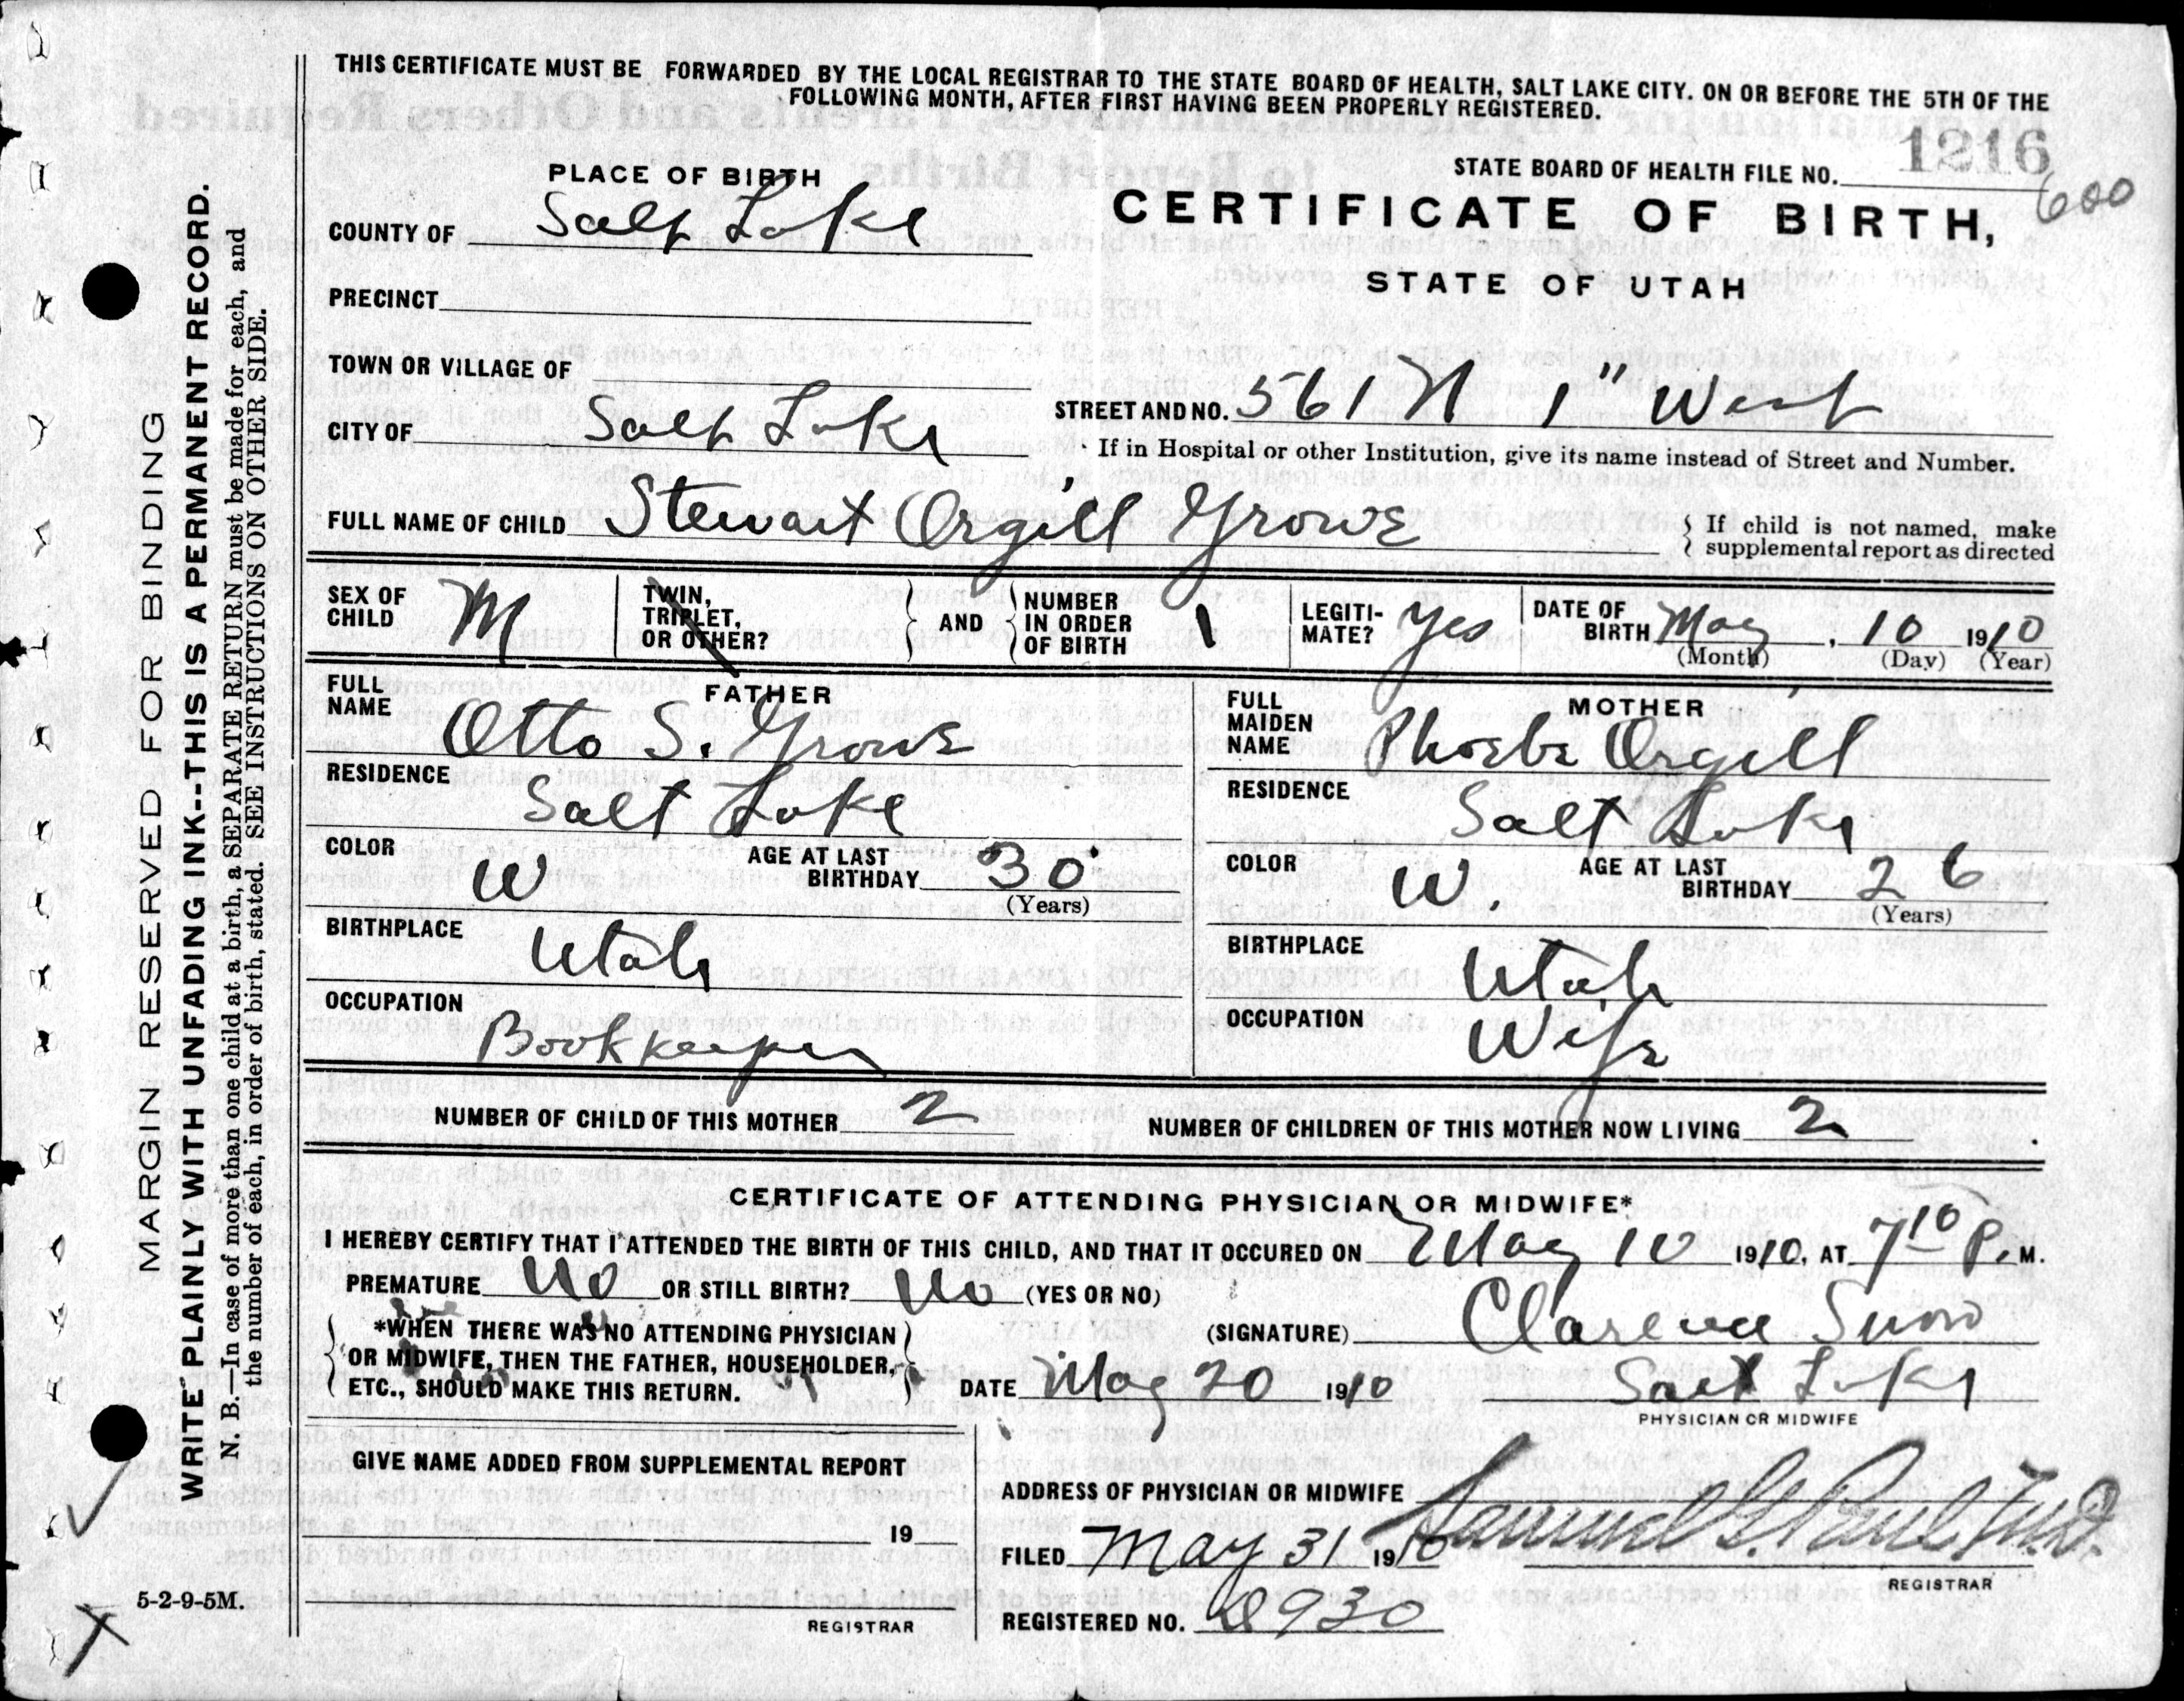 THIS CERTIFICATE MUST BE FORWARDED BY THE LOCAL REGISTRAR TO THE STATE BOARD OF HEALTH, SALT LAKE CITY. ON OR BEFORE THE 5TH OF THE
FOLLOWING MONTH, AFTER FIRST HAVING BEEN PROPERLY REGISTERED.
STATE BOARD OF HEALTH FILE NO. 1216
600
PLACE OF BIRTH
CERTIFICATE OF BIRTH,
STATE OF UTAH
COUNTY OF Salt Lake
PRECINCT
TOWN OR VILLAGE OF
CITY OF Salt Lake
STREET AND NO. 561 N 1" West
If in Hospital or other Institution, give its name instead of Street and Number.
FULL NAME OF CHILD Stewart Orgill Growe
If child is not named, make
supplemental report as directed
SEX OF CHILD M
TWIN, TRIPLET, OR OTHER?
AND
NUMBER IN ORDER OF BIRTH 1
LEGITI-MATE? Yes
DATE OF BIRTH May, 10 1910
(Month) (Day) (Year)
FATHER
FULL NAME Otto S. Growe
RESIDENCE Salt Lake
COLOR W
AGE AT LAST BIRTHDAY 30
(Years)
BIRTHPLACE Utah
OCCUPATION Bookkeeper
MOTHER
FULL MAIDEN NAME Phoebe Orgill
RESIDENCE Salt Lake
COLOR W.
AGE AT LAST BIRTHDAY 26
(Years)
BIRTHPLACE Utah
OCCUPATION Wife
NUMBER OF CHILD OF THIS MOTHER 2
NUMBER OF CHILDREN OF THIS MOTHER NOW LIVING 2
CERTIFICATE OF ATTENDING PHYSICIAN OR MIDWIFE*
I HEREBY CERTIFY THAT I ATTENDED THE BIRTH OF THIS CHILD, AND THAT IT OCCURED ON May 10 1910, AT 7 10 P. M.
PREMATURE No OR STILL BIRTH? No (YES OR NO)
*WHEN THERE WAS NO ATTENDING PHYSICIAN
OR MIDWIFE, THEN THE FATHER, HOUSEHOLDER,
ETC., SHOULD MAKE THIS RETURN.
(SIGNATURE) Clarence Snow
DATE May 20 1910
Salt Lake
PHYSICIAN OR MIDWIFE
GIVE NAME ADDED FROM SUPPLEMENTAL REPORT
19
REGISTRAR
ADDRESS OF PHYSICIAN OR MIDWIFE
FILED May 31 1910
Samuel G. Paul M.D.
REGISTRAR
REGISTERED NO. 930
MARGIN RESERVED FOR BINDING
WRITE PLAINLY WITH UNFADING INK--THIS IS A PERMANENT RECORD.
N. B.—In case of more than one child at a birth, a SEPARATE RETURN must be made for each, and
the number of each, in order of birth, stated. SEE INSTRUCTIONS ON OTHER SIDE.
5-2-9-5M.